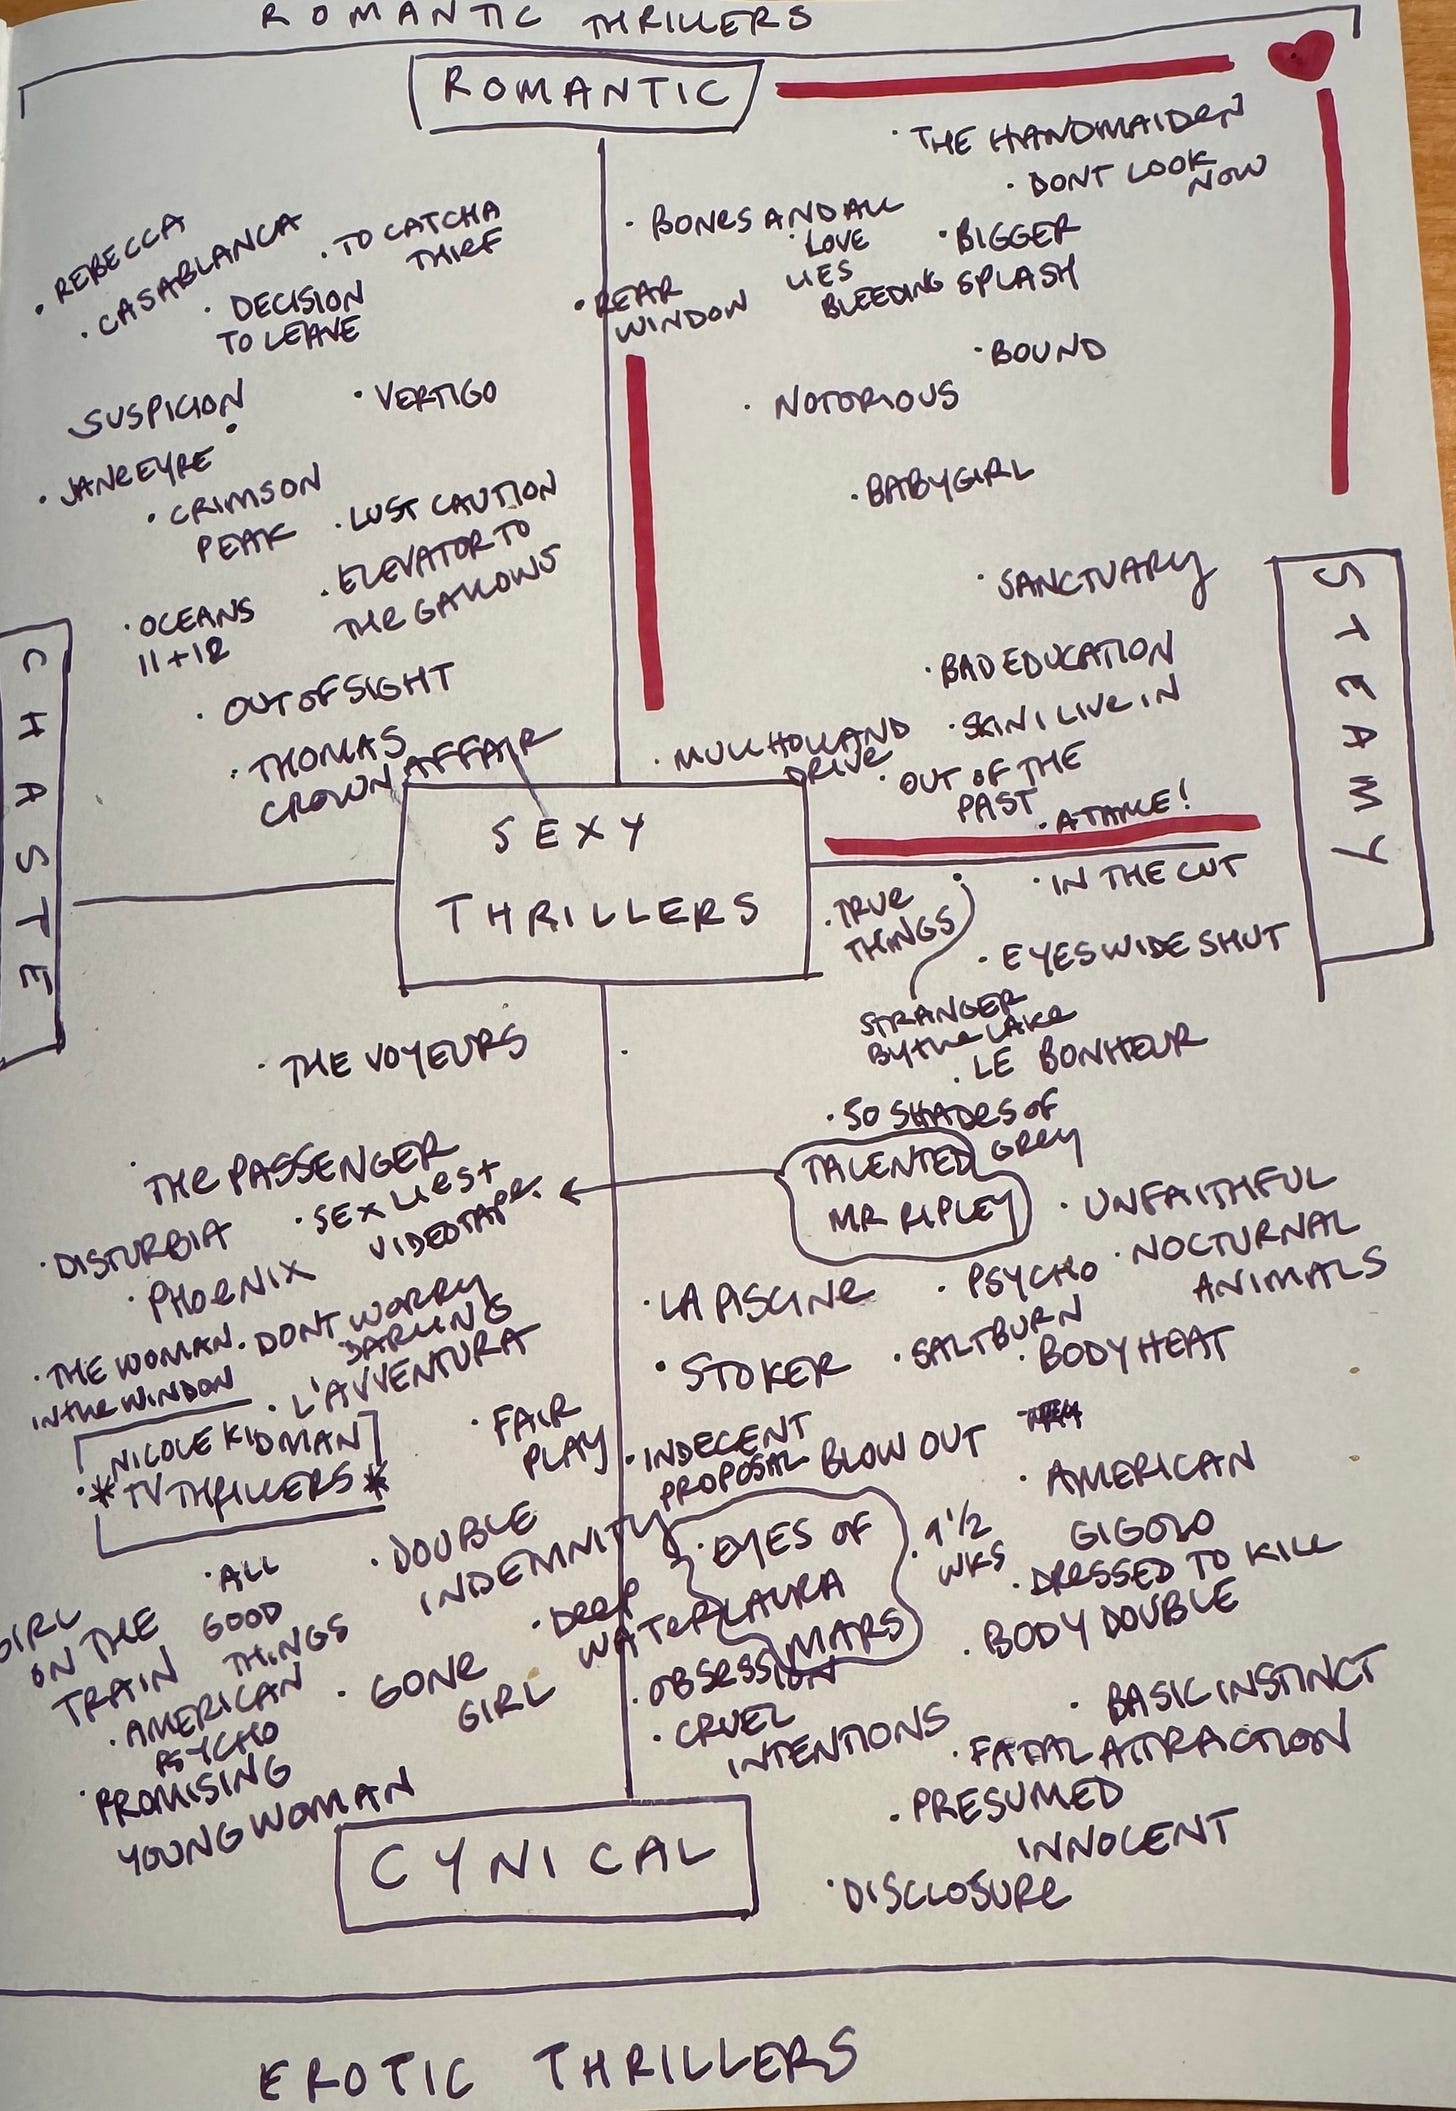 ROMANTIC THRILLERS
ROMANTIC
· THE HANDMAIDEN
· DONT LOOK
NOW
· BONES AND ALL
· LOVE
LIES
BLEEDING
· BIGGER
SPLASH
· REAR
WINDOW
· BOUND
· NOTORIOUS
· BABYGIRL
· SANCTUARY
· BAD EDUCATION
· SKIN I LIVE IN
· MULHOLLAND
DRIVE
· OUT OF THE
PAST
STEAMY
· REBECCA
· CASABLANCA
· TO CATCH A
THIEF
· DECISION
TO LEAVE
SUSPICION
· VERTIGO
· JANE EYRE
· CRIMSON
PEAK
· LUST CAUTION
· ELEVATOR TO
THE GALLOWS
· OCEANS
11 + 12
· OUT OF SIGHT
· THOMAS
CROWN AFFAIR
CHASTE
SEXY
THRILLERS
· TRUE
THINGS
· IN THE CUT
· EYES WIDE SHUT
STRANGER
BY THE LAKE
· LE BONHEUR
· 50 SHADES OF
GREY
TALENTED
MR RIPLEY
· UNFAITHFUL
· NOCTURNAL
ANIMALS
· LA PISCINE
· PSYCHO
· STOKER
· SALTBURN
· BODY HEAT
· INDECENT
PROPOSAL
· BLOW OUT
· AMERICAN
GIGOLO
· EYES OF
LAURA
MARS
· 9 1/2
WKS
· DRESSED TO KILL
· BODY DOUBLE
· OBSESSION
· CRUEL
INTENTIONS
· BASIC INSTINCT
· FATAL ATTRACTION
· PRESUMED
INNOCENT
· DISCLOSURE
· THE VOYEURS
· THE PASSENGER
· DISTURBIA
· SEX LIES +
VIDEOTAPE
· PHOENIX
· THE WOMAN
IN THE WINDOW
· DONT WORRY
DARLING
· L'AVVENTURA
NICOLE KIDMAN
* TV THRILLERS *
· FAIR
PLAY
· DOUBLE
INDEMNITY
· ALL
GOOD
THINGS
GIRL
ON THE
TRAIN
· DEEP
WATER
· GONE
GIRL
· AMERICAN
PSYCHO
· PROMISING
YOUNG WOMAN
CYNICAL
EROTIC THRILLERS